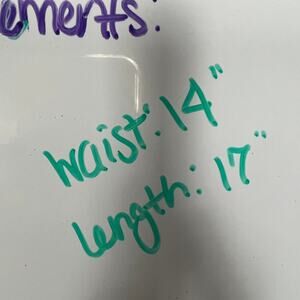 ements:
waist: 14"
length: 17"